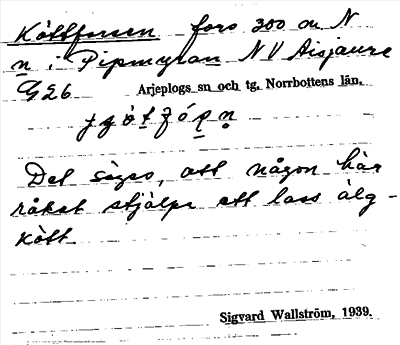 Köttforsen fors 300 m N
n i Pipmyran N V Aisjaure
G26 Arjeplogs sn och tg. Norrbottens län.
Det säges, att någon här
råkat stjälpa ett lass älg-
kött
Sigvard Wallström, 1939.